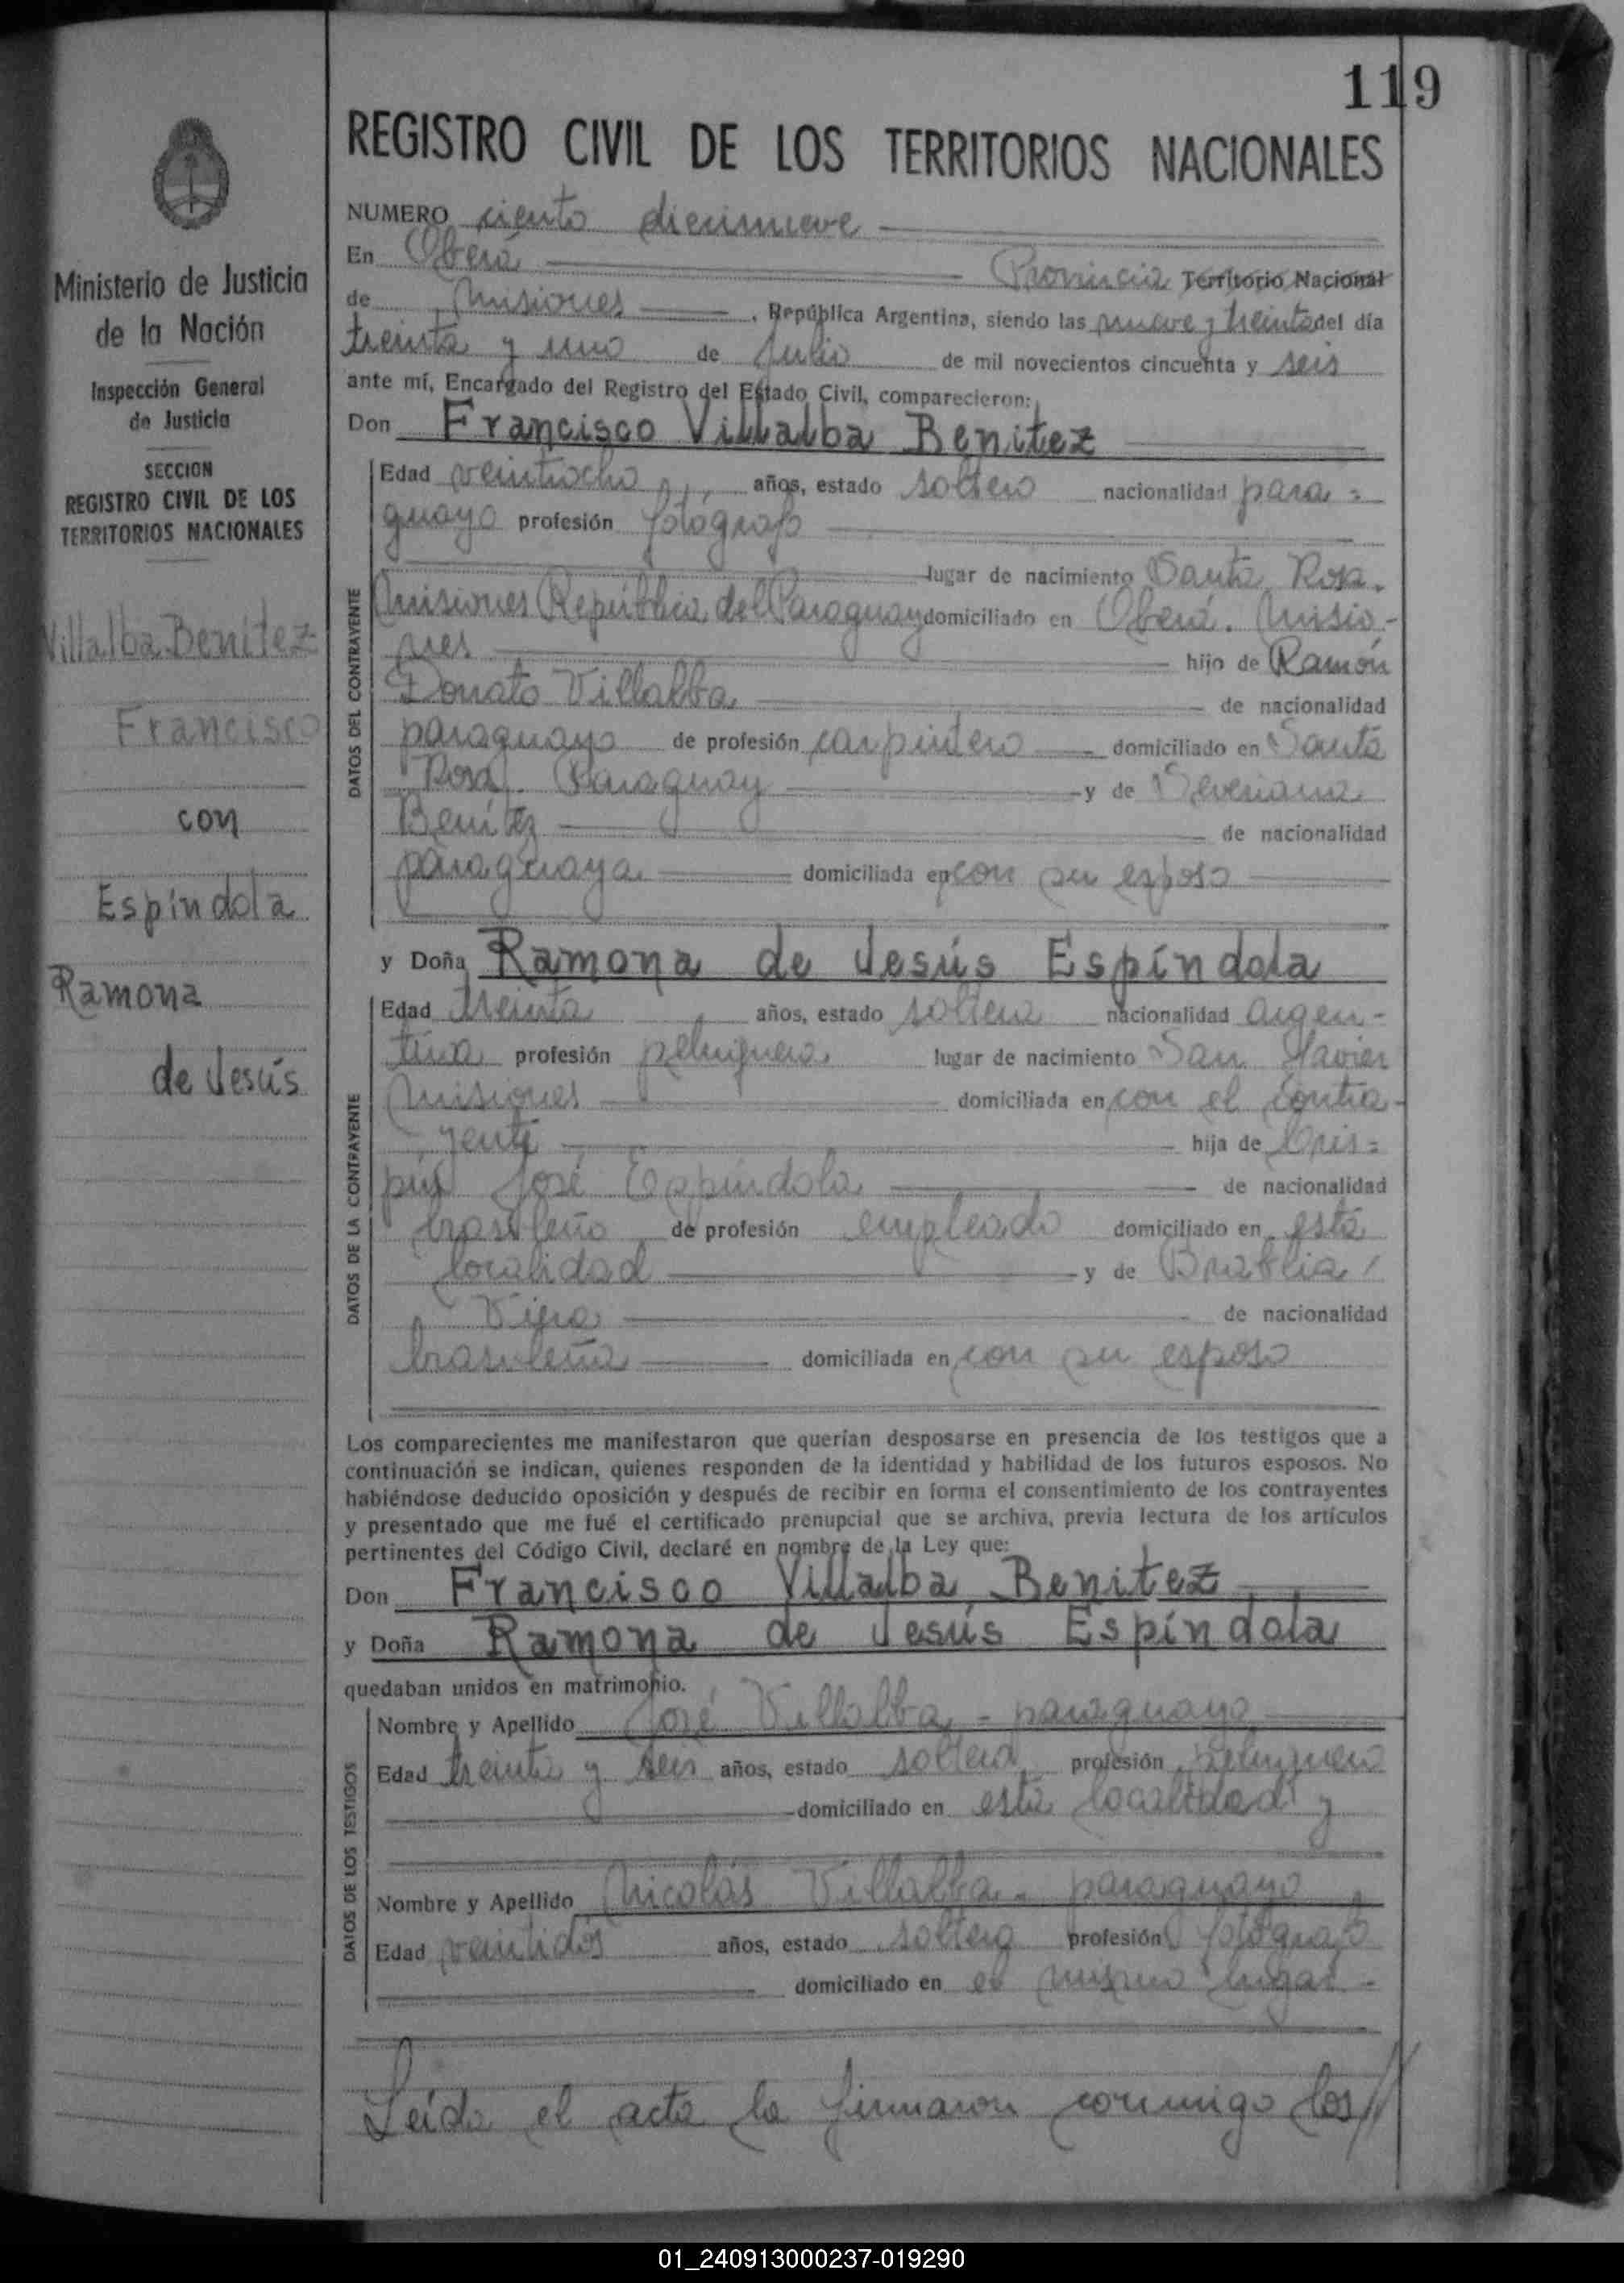 119
REGISTRO CIVIL DE LOS TERRITORIOS NACIONALES
Ministerio de Justicia
de la Nación
Inspección General
de Justicia
SECCION
REGISTRO CIVIL DE LOS
TERRITORIOS NACIONALES
Villalba Benítez
Francisco
con
Espíndola
Ramona
de Jesús
NUMERO ciento diecinueve
En Oberá Provincia Territorio Nacional
de Misiones, República Argentina, siendo las nueve y treinta del día
treinta y uno de Julio de mil novecientos cincuenta y seis
ante mí, Encargado del Registro del Estado Civil, comparecieron:
Don Francisco Villalba Benitez
DATOS DEL CONTRAYENTE
Edad veintiocho años, estado soltero nacionalidad para=
guayo profesión fotógrafo
lugar de nacimiento Santa Rosa.
Misiones República del Paraguay domiciliado en Oberá. Misio-
nes hijo de Ramón
Donato Villalba de nacionalidad
paraguayo de profesión carpintero domiciliado en Santa
Rosa. Paraguay y de Severiana
Benítez de nacionalidad
paraguaya domiciliada en con su esposo
y Doña Ramona de Jesús Espíndola
DATOS DE LA CONTRAYENTE
Edad treinta años, estado soltera nacionalidad argen-
tina profesión peluquera lugar de nacimiento San Javier
Misiones domiciliada en con el contra-
yente hija de Cris=
pín José Espíndola de nacionalidad
brasileño de profesión empleado domiciliado en esta
localidad y de
de nacionalidad
brasileña domiciliada en con su esposo
Los comparecientes me manifestaron que querían desposarse en presencia de los testigos que a
continuación se indican, quienes responden de la identidad y habilidad de los futuros esposos. No
habiéndose deducido oposición y después de recibir en forma el consentimiento de los contrayentes
y presentado que me fué el certificado prenupcial que se archiva, previa lectura de los artículos
pertinentes del Código Civil, declaré en nombre de la Ley que:
Don Francisco Villalba Benitez
y Doña Ramona de Jesús Espíndola
quedaban unidos en matrimonio.
DATOS DE LOS TESTIGOS
Nombre y Apellido José Villalba - paraguayo
Edad treinta y seis años, estado soltero profesión peluquero
domiciliado en esta localidad y
Nombre y Apellido Nicolás Villalba - paraguayo
Edad veintidós años, estado soltero profesión fotógrafo
domiciliado en el mismo lugar.-
Leída el acta la firmaron conmigo los//
01_240913000237-019290